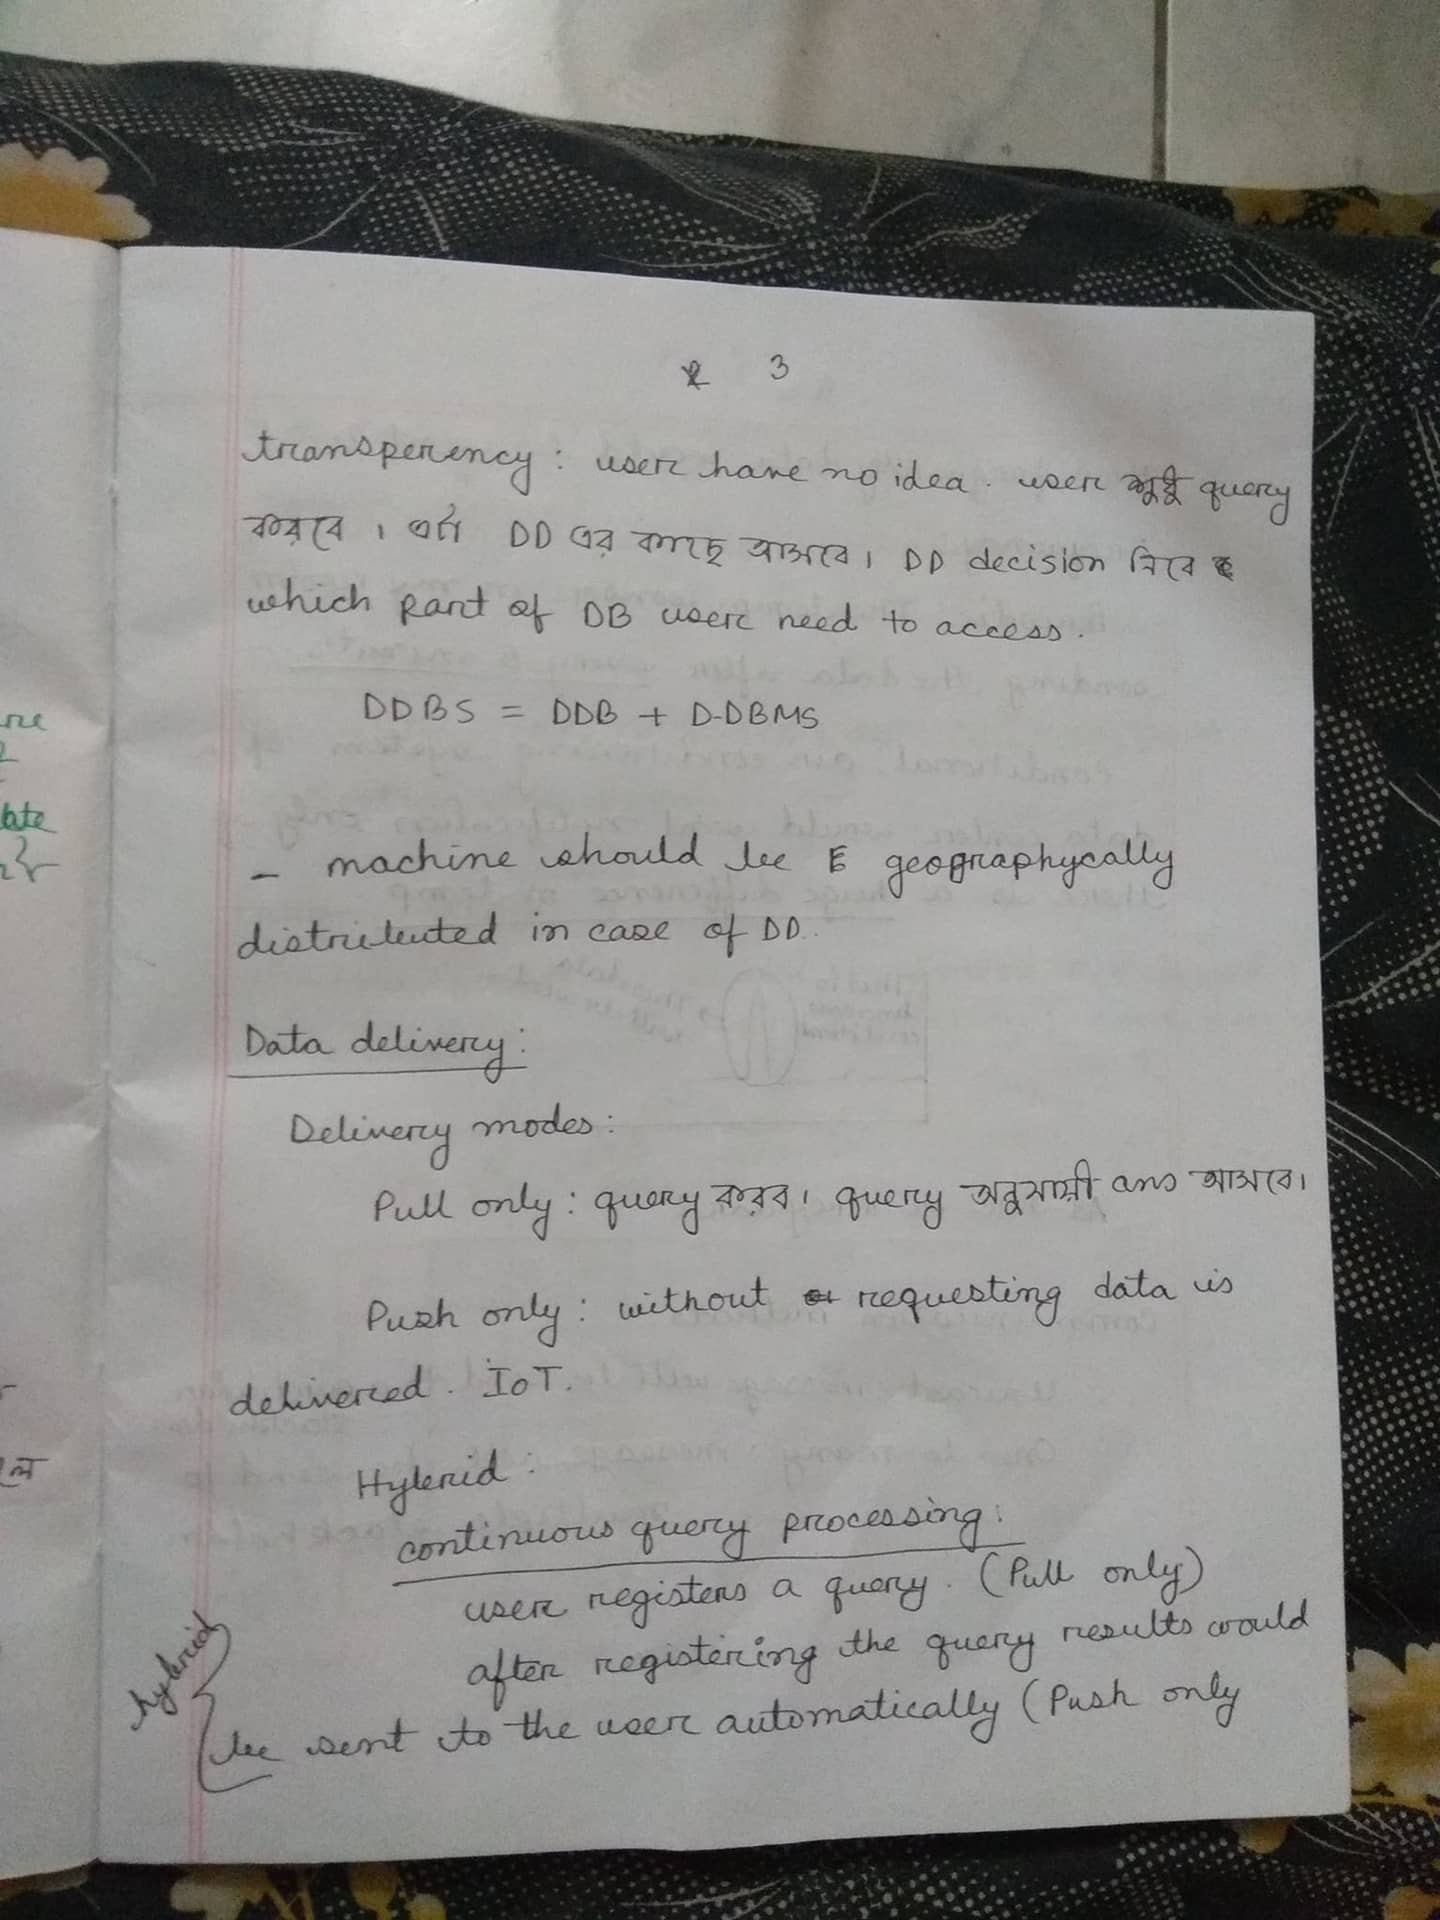 3
transperency : user have no idea. user শুধু query
করবে। এটা DD এর কাছে আসবে। DD decision নিবে
which part of DB user need to access.
DDBS = DDB + D-DBMS
- machine should be geographycally
distributed in case of DD.
Data delivery:
Delivery modes:
Pull only: query করব। query অনুযায়ী ans আসবে।
Push only: without requesting data is
delivered. IoT.
Hybrid:
continuous query processing:
user registers a query. (Pull only)
after registering the query results would
be sent to the user automatically (Push only
hybrid
ate